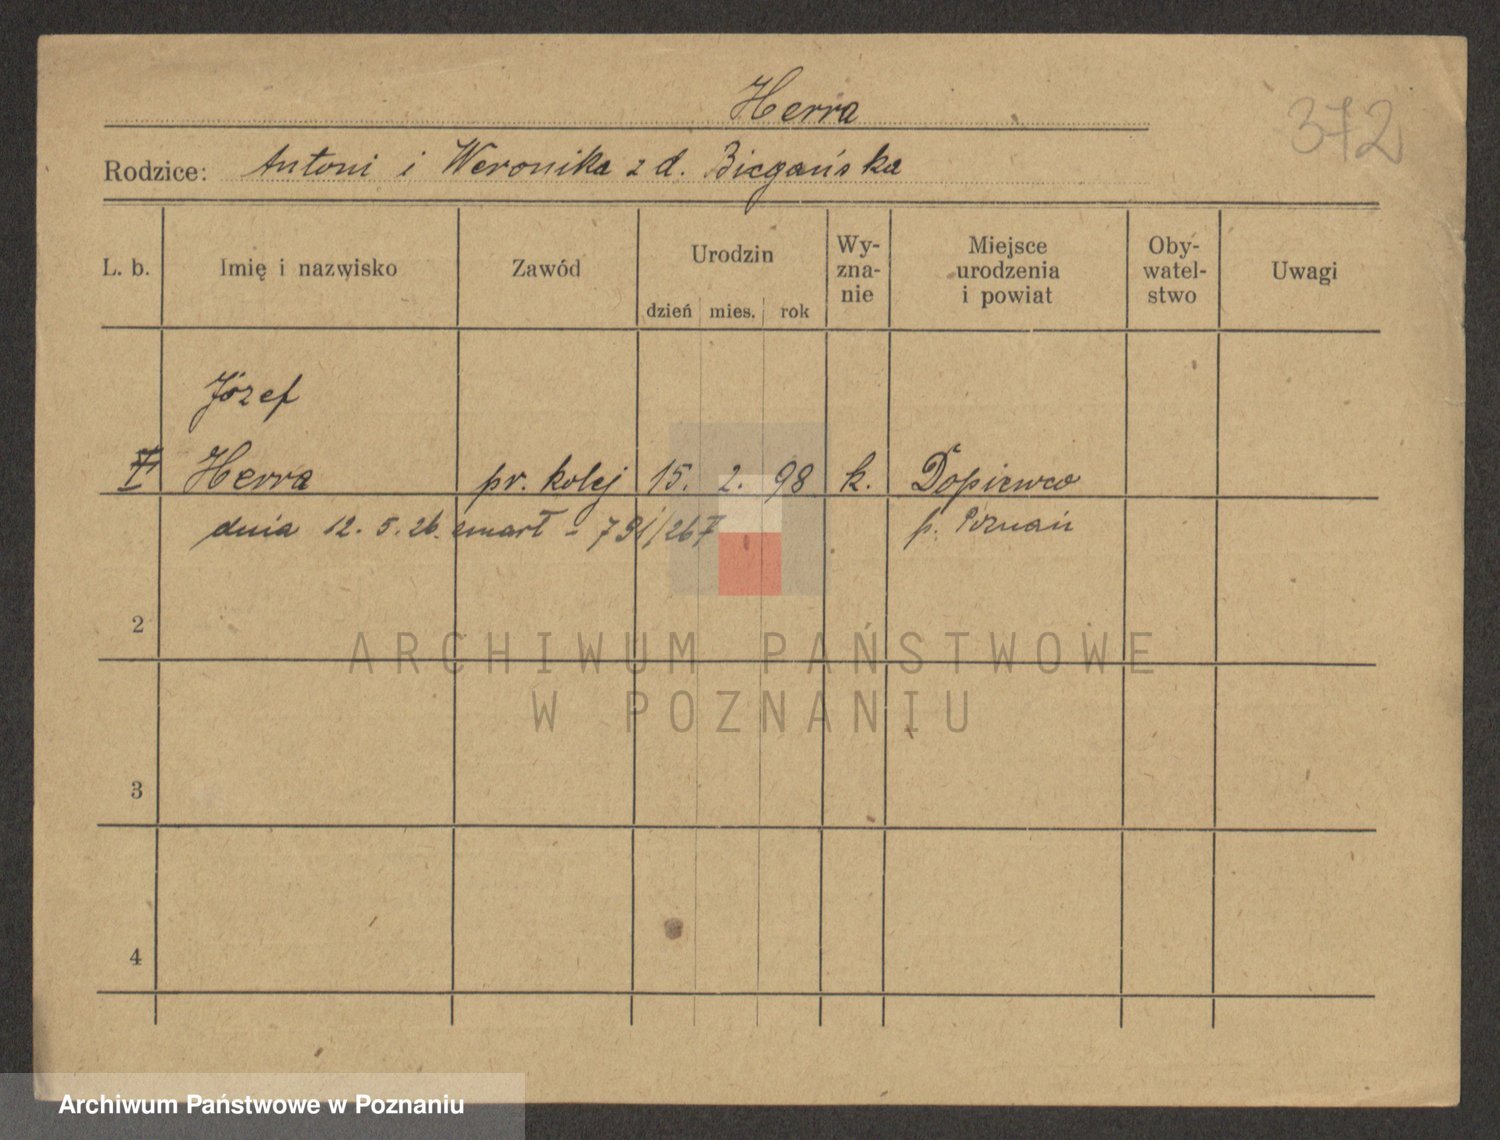 Herra
372
Rodzice: Antoni i Weronika z d. Biegańska
L. b. Imię i nazwisko Zawód Urodzin dzień mies. rok Wy-zna-nie Miejsce urodzenia i powiat Oby-watel-stwo Uwagi
Józef
Herra pr. kolej 15. 2. 98 k. Dopiewco
dnia 12. 5. 26. zmarł - 791/26 p. Poznań
2
ARCHIWUM PAŃSTWOWE
W POZNANIU
3
4
Archiwum Państwowe w Poznaniu